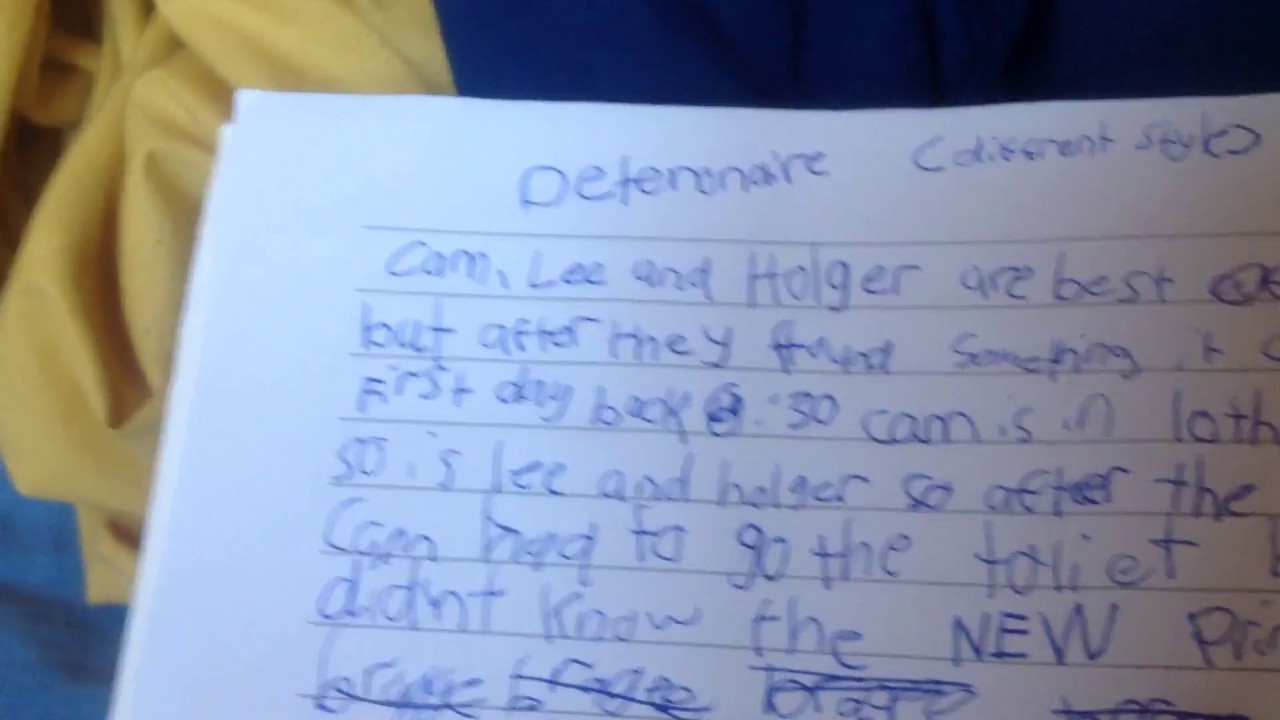 Detenonaire (different style)
Cam, Lee and Holger are best
but after they found something it
First day back :30 cam is in loth
so is lee and holger so after the
Cam had to go the toliet
didnt know the NEW Pri